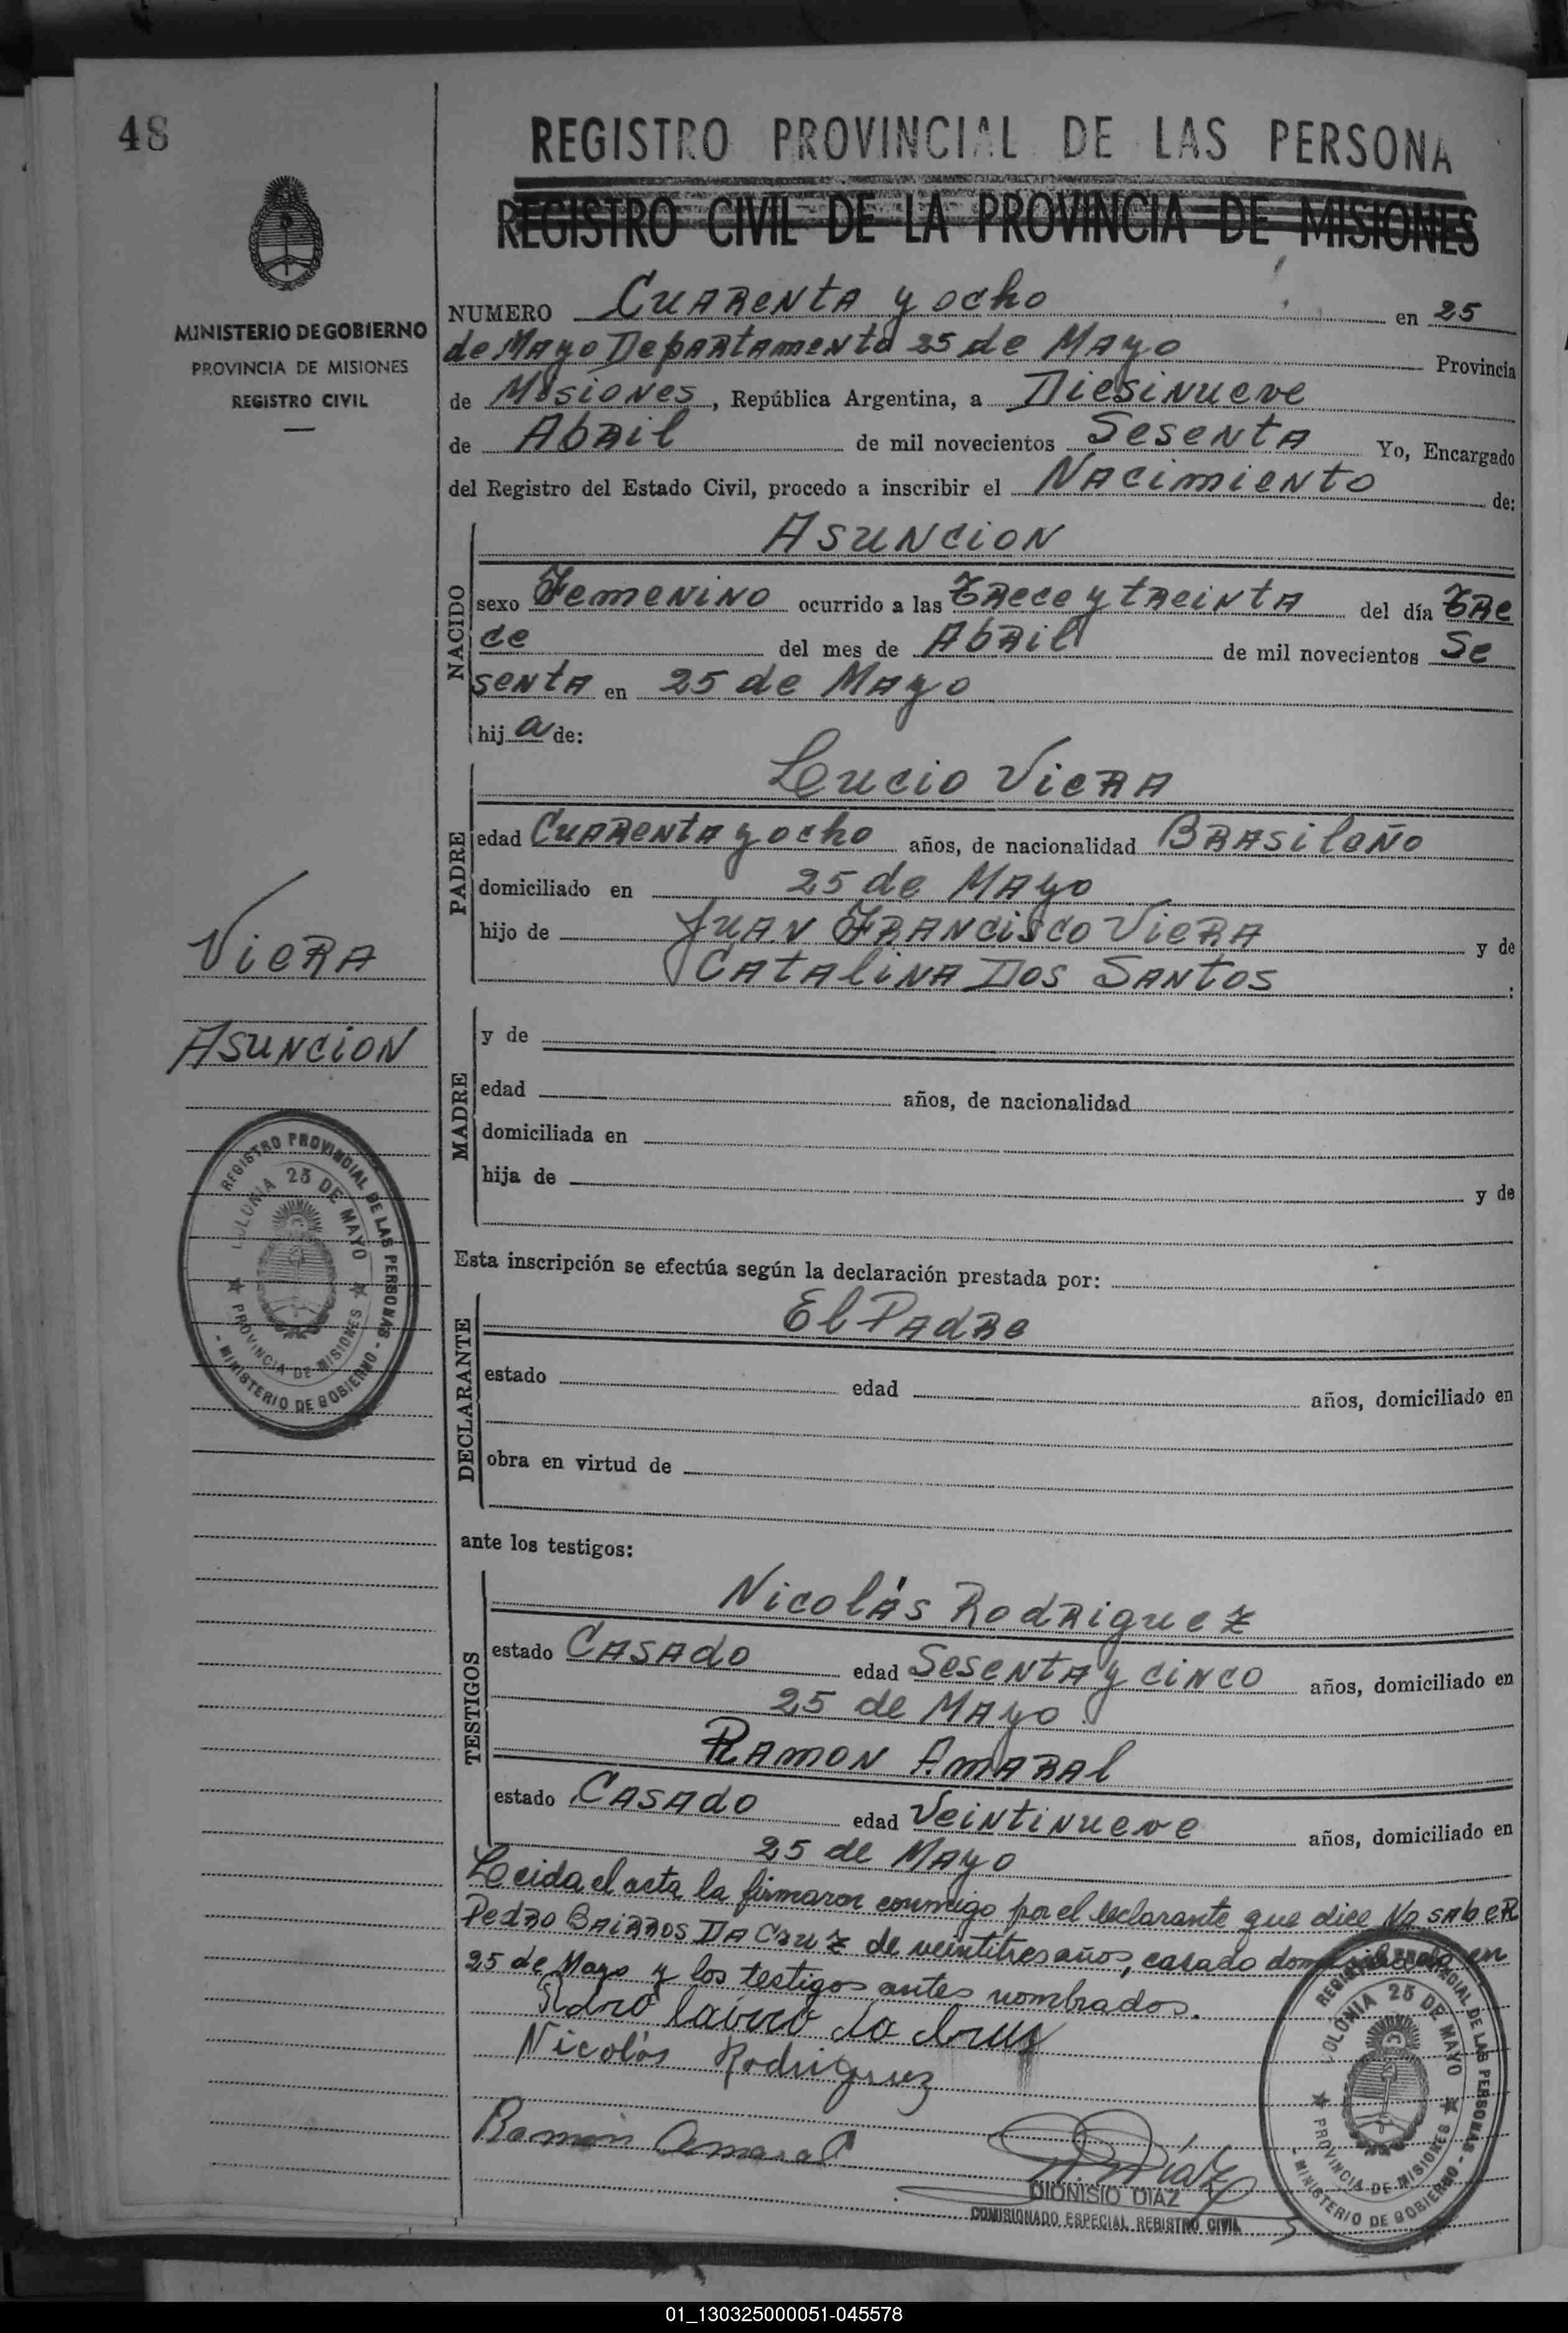 48
MINISTERIO DE GOBIERNO
PROVINCIA DE MISIONES
REGISTRO CIVIL
REGISTRO PROVINCIAL DE LAS PERSONA
REGISTRO CIVIL DE LA PROVINCIA DE MISIONES
NUMERO Cuarenta y ocho en 25
de Mayo Departamento 25 de Mayo Provincia
de Misiones, República Argentina, a Diesinueve
de Abril de mil novecientos Sesenta Yo, Encargado
del Registro del Estado Civil, procedo a inscribir el Nacimiento de:
NACIDO
Asuncion
sexo Femenino ocurrido a las Trece y treinta del día Tre
ce del mes de Abril de mil novecientos Se
senta en 25 de Mayo
hija de:
PADRE
Lucio Viera
edad Cuarenta y ocho años, de nacionalidad Brasileño
domiciliado en 25 de Mayo
hijo de Juan Francisco Viera y de
Catalina Dos Santos :
Viera
Asuncion
MADRE
y de
edad años, de nacionalidad
domiciliada en
hija de y de
REGISTRO PROVINCIAL DE LAS PERSONAS - MINISTERIO DE GOBIERNO -
COLONIA 25 DE MAYO
PROVINCIA DE MISIONES
Esta inscripción se efectúa según la declaración prestada por:
DECLARANTE
El Padre
estado edad años, domiciliado en
obra en virtud de
ante los testigos:
TESTIGOS
Nicolás Rodriguez
estado Casado edad Sesenta y cinco años, domiciliado en
25 de Mayo
Ramon Amaral
estado Casado edad Veintinueve años, domiciliado en
25 de Mayo
Leida el acta la firmaron conmigo por el declarante que dice No saber
Pedro Bairros Da Cruz de veintitres años, casado domiciliado en
25 de Mayo y los testigos antes nombrados.
da Cruz
Nicolás Rodriguez
Ramón Amaral
D. Díaz
DIONISIO DIAZ
COMISIONADO ESPECIAL REGISTRO CIVIL
REGISTRO PROVINCIAL DE LAS PERSONAS - MINISTERIO DE GOBIERNO -
COLONIA 25 DE MAYO
PROVINCIA DE MISIONES
01_130325000051-045578